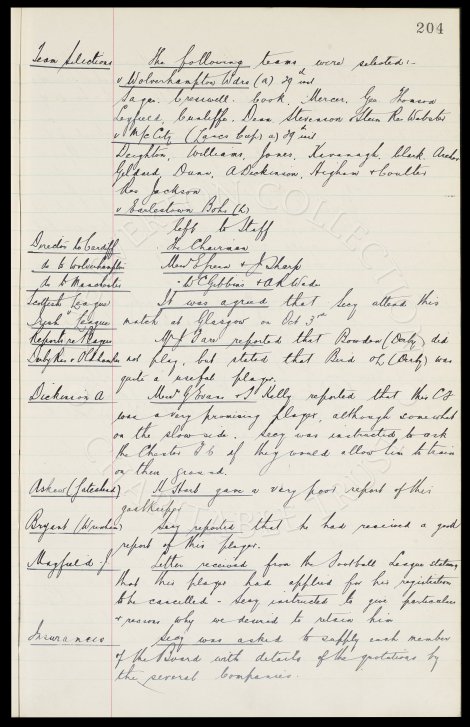 204
Team Selections The following teams were selected:-
v Wolverhampton Wdrs (a) 29th inst
Sagar. Cresswell. Cook. Mercer. Geo Thomson
Leyfield. Cunliffe. Dean Stevenson & Stein Res Webster
v M/c City (Lancs Cup) a) 29th inst
Deighton, Williams, Jones, Kavanagh, Clark. Archer
Geldard, Dunn, A Dickinson, Higham & Coulter
Res Jackson
v Earlestown Bohs (h)
left to Staff
Director to Cardiff The Chairman
do to Wolverhampton Messrs E Green & J Sharp
do to Manchester " W C Gibbins & A R Wade
Scottish League It was agreed that Secy attend this
Irish League match at Glasgow on Oct 3rd
Reports re Players Mr J Fare reported that Bowden (Derby) did
Derby Res v Oldham Res not play, but stated that Bird OL (Derby) was
quite a useful player.
Dickinson A Messrs G Evans & T Kelly reported that this CF
was a very promising player, although somewhat
on the slow side. Secy was instructed to ask
the Chester FC if they would allow him to train
on their ground.
Askew (Gateshead) H Hart gave a very poor report of this
goalkeeper
Bryant (Wrexham) Secy reported that he had received a good
report of this player.
Mayfield: J. Letter received from the Football League stating
that this player had applied for his registration
to be cancelled - Secy instructed to give particulars
& reasons why we desired to retain him
Insurances Secy was asked to supply each member
of the Board with details of the quotations by
the several Companies.